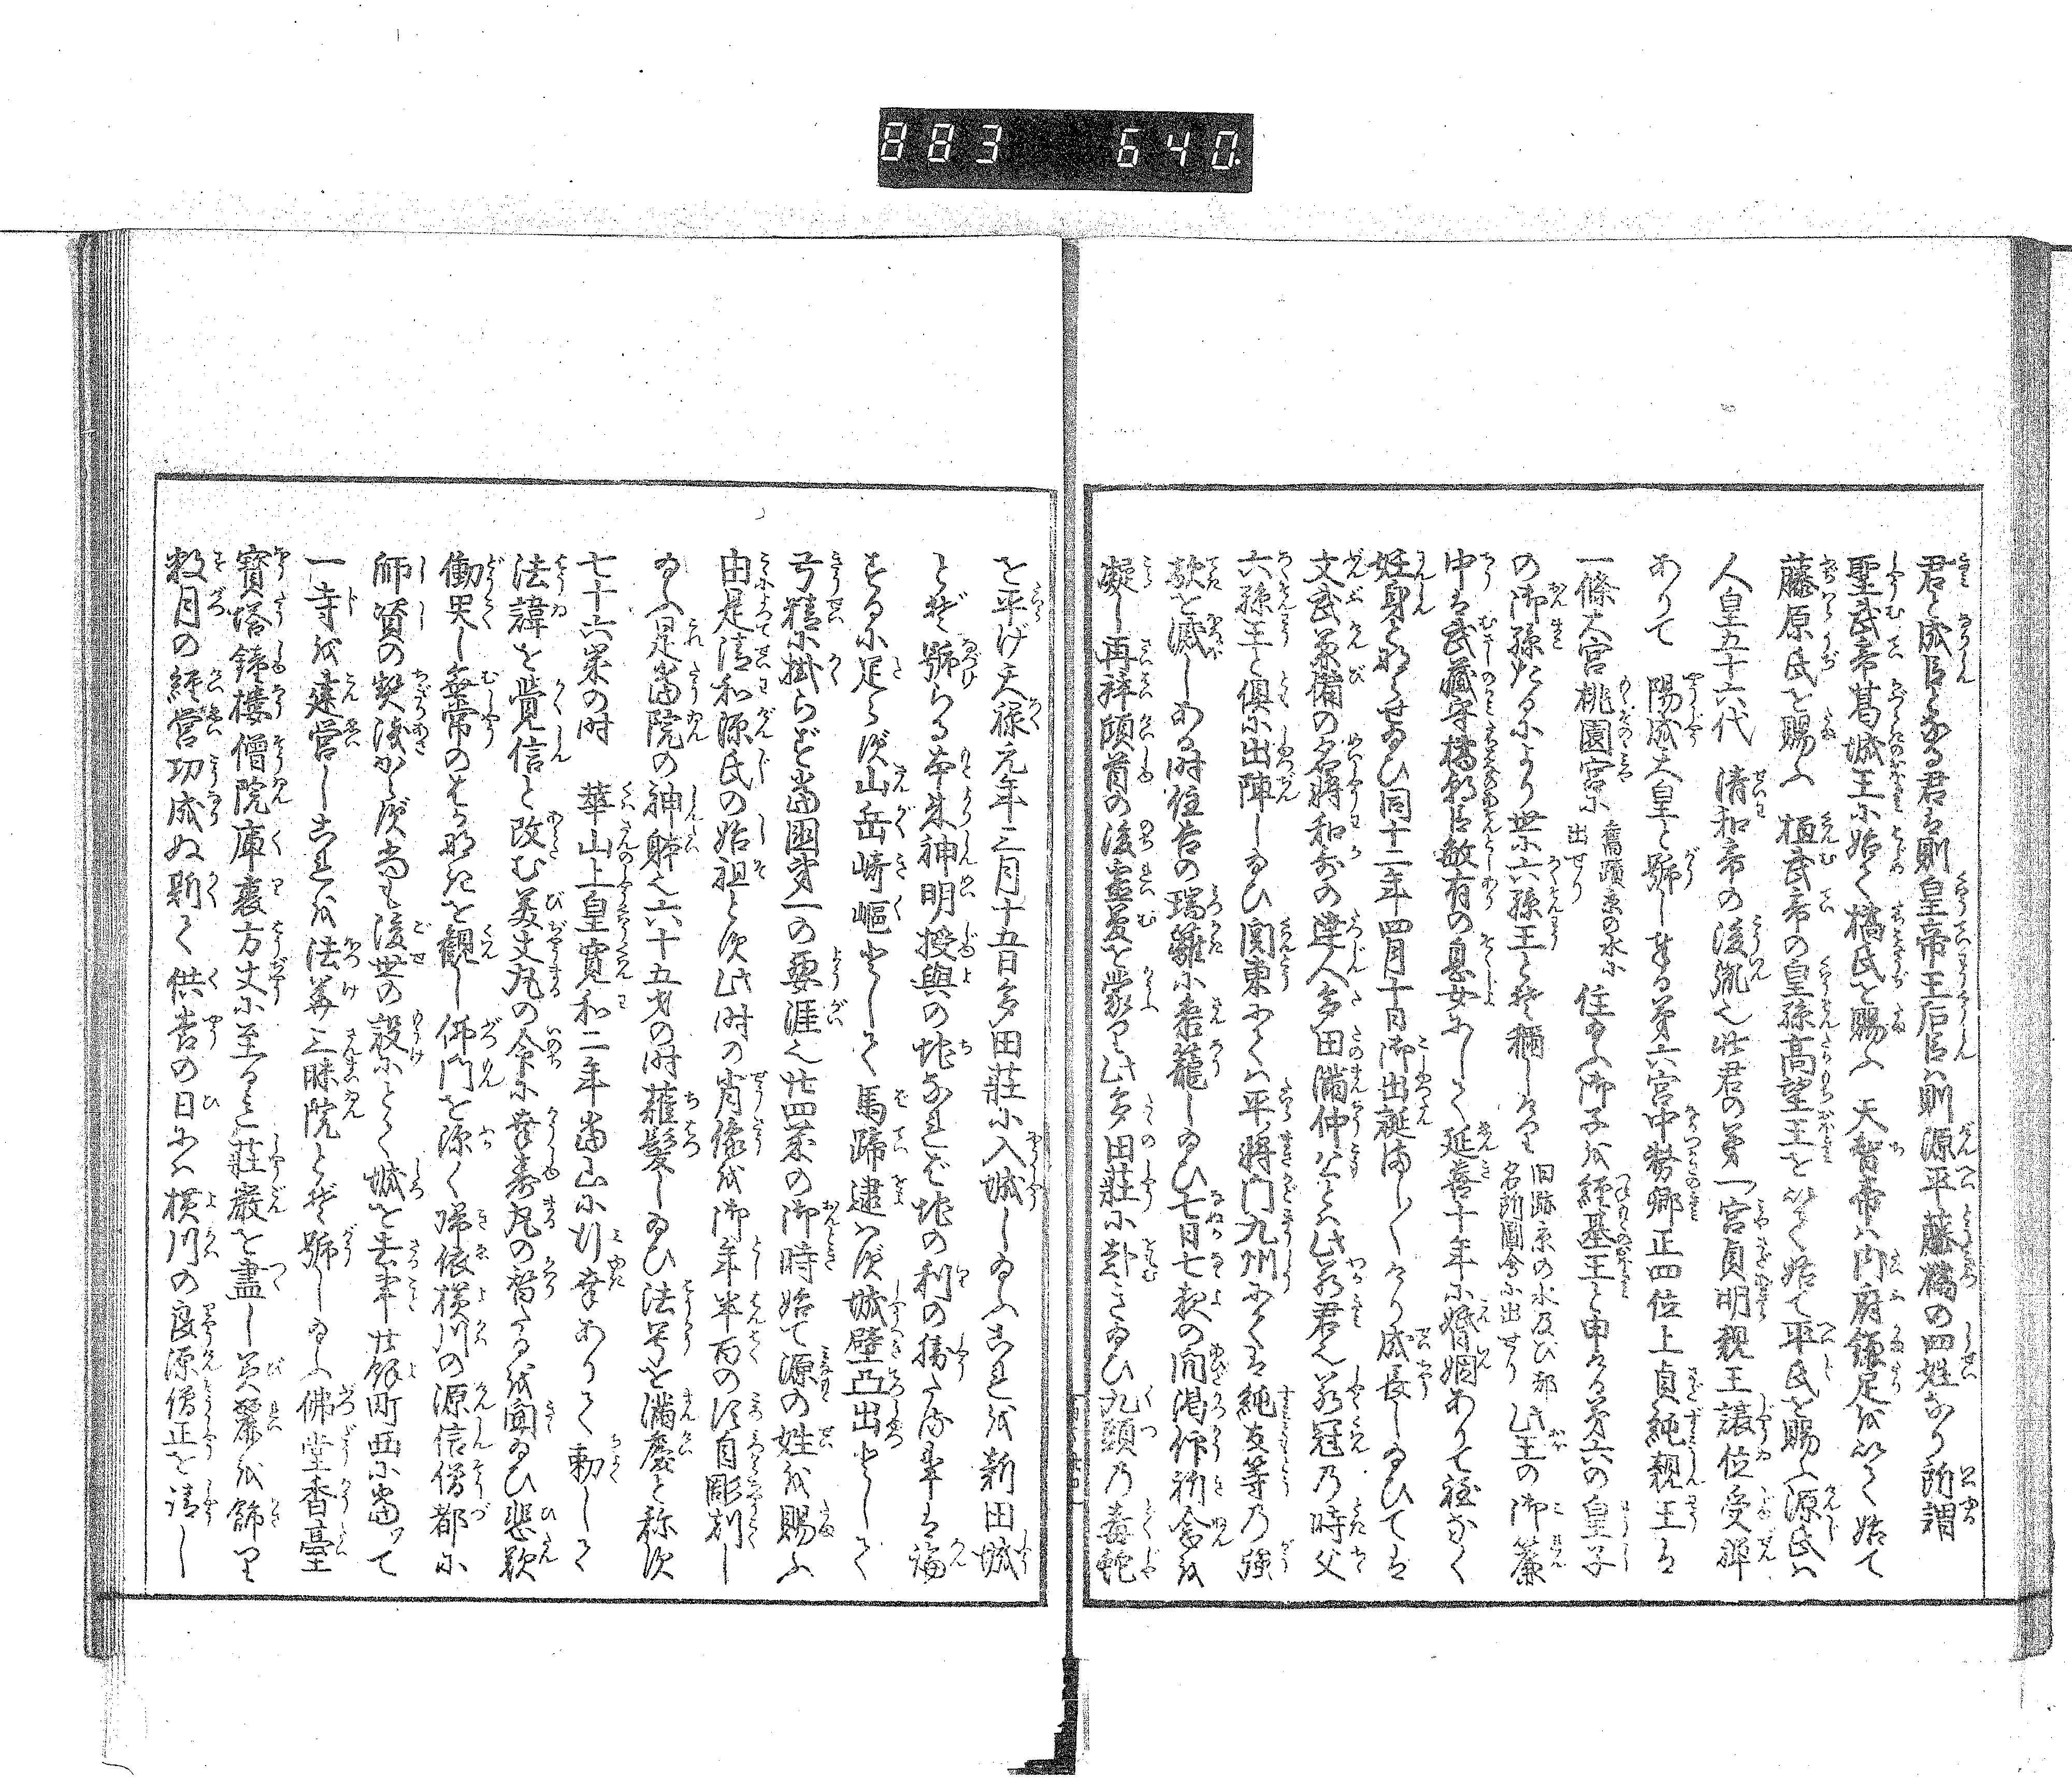 883 640.
君と成臣となる君は則皇帝王后臣ハ則源平藤橘の四姓なり所謂
聖武帝葛城王に始て橘氏を賜ふ 天智帝ハ内府鎌足を以て始て
藤原氏を賜ふ 桓武帝の皇孫高望王を以て始て平氏を賜ふ源氏ハ
人皇五十六代 清和帝の後胤也此君の第一宮貞明親王譲位受禅
ありて 陽成天皇と号し奉る第六宮中務卿正四位上貞純親王は
一條大宮桃園宮に 旧蹟京の水に出せり 住給ふ御子を経基王と申ける第六の皇子
の御孫たるにより世に六孫王とぞ称しける 旧跡京の水及び都名所圖會に出せり 此王の御簾
中は武蔵守橘朝臣敏有の息女にして延喜十年に婚姻ありて程なく
妊身と成らせ給ひ同十二年四月十日御出誕まし〳〵けり成長し給ひては
文武兼備の名将和哥の達人多田満仲公とハ此若君也若冠乃時父
六孫王と倶に出陣し給ひ関東にてハ平将門九州にては純友等乃強
敵を滅しある時住吉の瑞籬に参籠し給ひ七日七夜の間渇仰祈念を
凝し再拝頓首の後霊夢を蒙り此多田莊に赴き給ひ九頭乃毒蛇
を平げ天禄元年三月十五日多田莊に入城し給ふこれを新田城
とぞ号らる本朱神明授與の地なれば地の利の勝たる事は論
ずるに足らず山岳崎嶇として馬蹄逮ハず城壁凸出として
弓精に掛らず当国第一の要涯也廿四茉の御時始て源の姓を賜ふ
由是清和源氏の始祖とす此時の肖像を御年半百の頃自彫刻し
給ふ是当院の神躰也六十五才の時薙髪し給ひ法号を満慶と称す
七十六茉の時 華山上皇寛和二年当山に行幸ありて勅して
法諱を覚信と改む美丈丸の命に幸寿丸の替たるを聞給ひ悲歎
働哭し無常のはかなきを観し佛門を源く帰依横川の源信僧都に
師資の契浅からず尚も後世の設にとて城を去事廿餘町西に当ッて
一寺を建営しこれを法華三昧院とぞ号し給ふ佛堂香臺
寶塔鐘楼僧院庫裏方丈に至るまで莊嚴を盡し美麗を飾り
数月の経営功成ぬ斯て供養の日にハ横川の良源僧正を請し